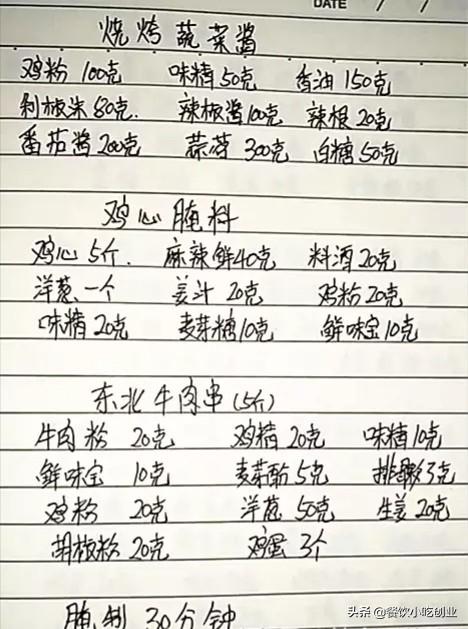 DATE / /
烧烤蔬菜酱
鸡粉 100克 味精 50克 香油 150克
剁椒米 80克. 辣椒酱 100克 辣根 20克
番茄酱 200克 蒜蓉 300克 白糖 50克
鸡心腌料
鸡心 5斤. 麻辣鲜 40克 料酒 20克
洋葱一个 姜汁 20克 鸡粉 20克
味精 20克 麦芽糖 10克 鲜味宝 10克
东北牛肉串(5斤)
牛肉粉 20克 鸡精 20克 味精 10克
鲜味宝 10克 麦芽酚 5克 3克
鸡粉 20克 洋葱 50克 生姜 20克
胡椒粉 20克 鸡蛋 3个
腌制 30分钟
头条 @餐饮小吃创业